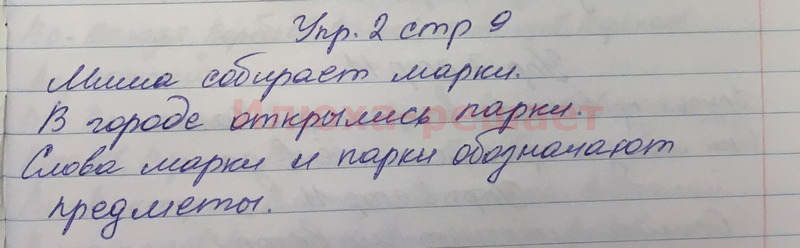 Упр. 2 стр 9
Миша собирает марки.
В городе открылись парки.
Илюха решает
Слова марки и парки обозначают
предметы.